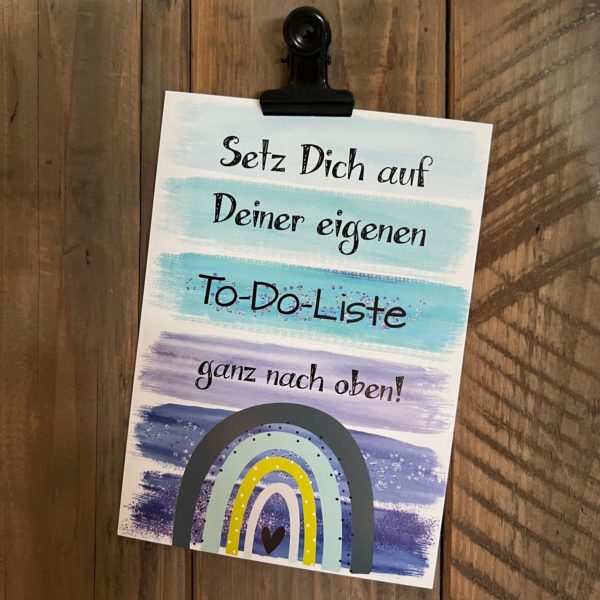 Setz Dich auf
Deiner eigenen
To-Do-Liste
ganz nach oben!